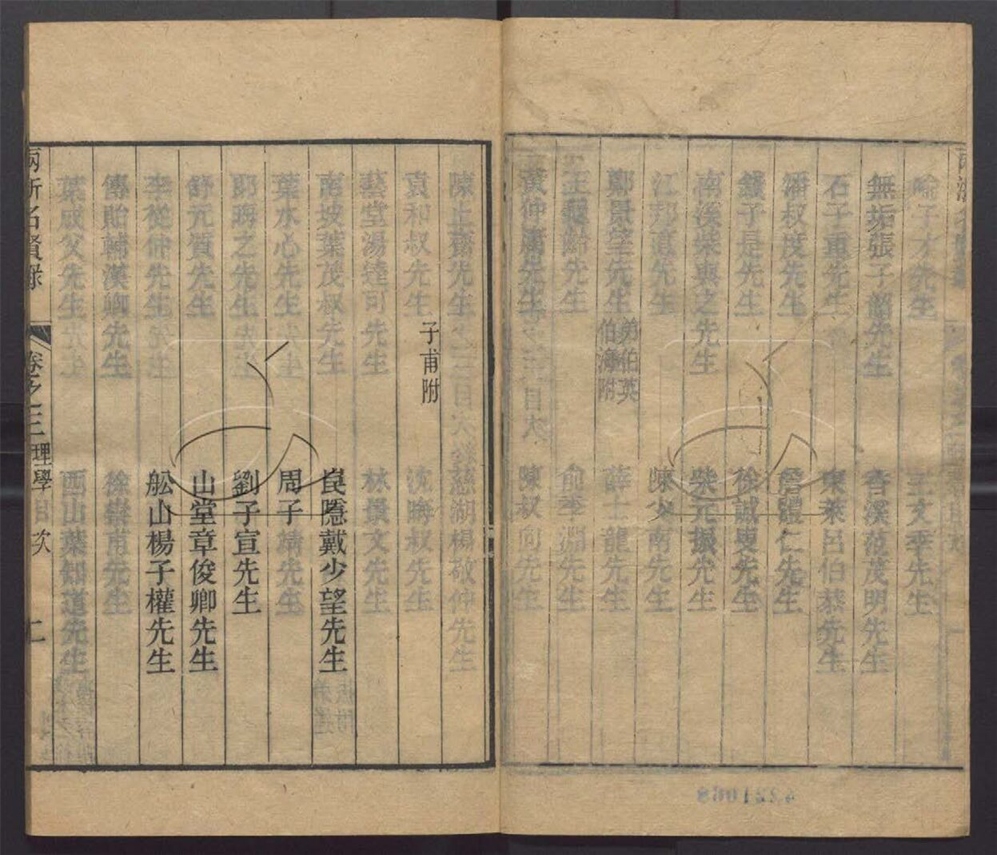 喻子才先生　先生
無垢張子韶先生　香溪范茂明先生
石子重先生　東萊呂伯恭先生
潘叔度先生　詹體仁先生
錢子是先生　徐誠叟先生
南溪柴與之先生　柴元振先生
江邦直先生　陳少南先生
鄭景望先生　弟伯英
伯海附　薛士龍先生
王龜齡先生　俞季淵先生
黃仲先生　陳叔向先生
陳止齋先生　慈湖楊敬仲先生
袁和叔先生　子甫附　沈晦叔先生
湯達可先生　林景文先生
南坡葉茂叔先生　良隱戴少望先生
葉水心先生　周子靖先生
晦之先生　劉子宣先生
舒元質先生　山堂章俊卿先生
李從仲先生　舩山楊子權先生
傳貽輔漢卿先生　徐崇甫先生
葉成父先生　西山葉知道先生
兩浙名賢錄　卷之三　理學目次　二